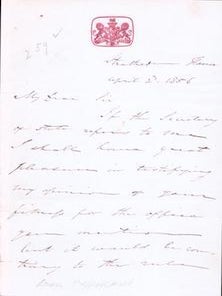 259
April 2. 1886
My Dear Sir
If the Secretary
of State refers to me
I shall have great
pleasure in testifying
my opinion of your
fitness for the office
you mention
but it would be con
trary to the rules